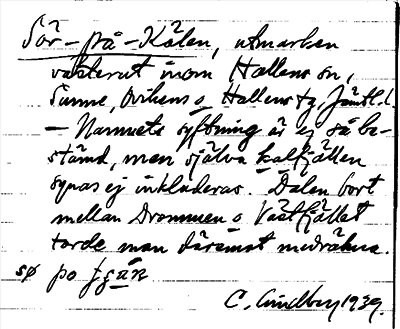 Sör-på-Kölen, utmarken
västerut inom Hallens sn,
Sunne, Ovikens o Hallens tg, Jämtl.l.
— Namnets syftning är ej så be-
stämd, men själva kalfjällen
synas ej inkluderas. Dalen bort
mellan Drommen o Västfjället
torde man däremot medräkna.
sø po
C. Lindberg 1939.